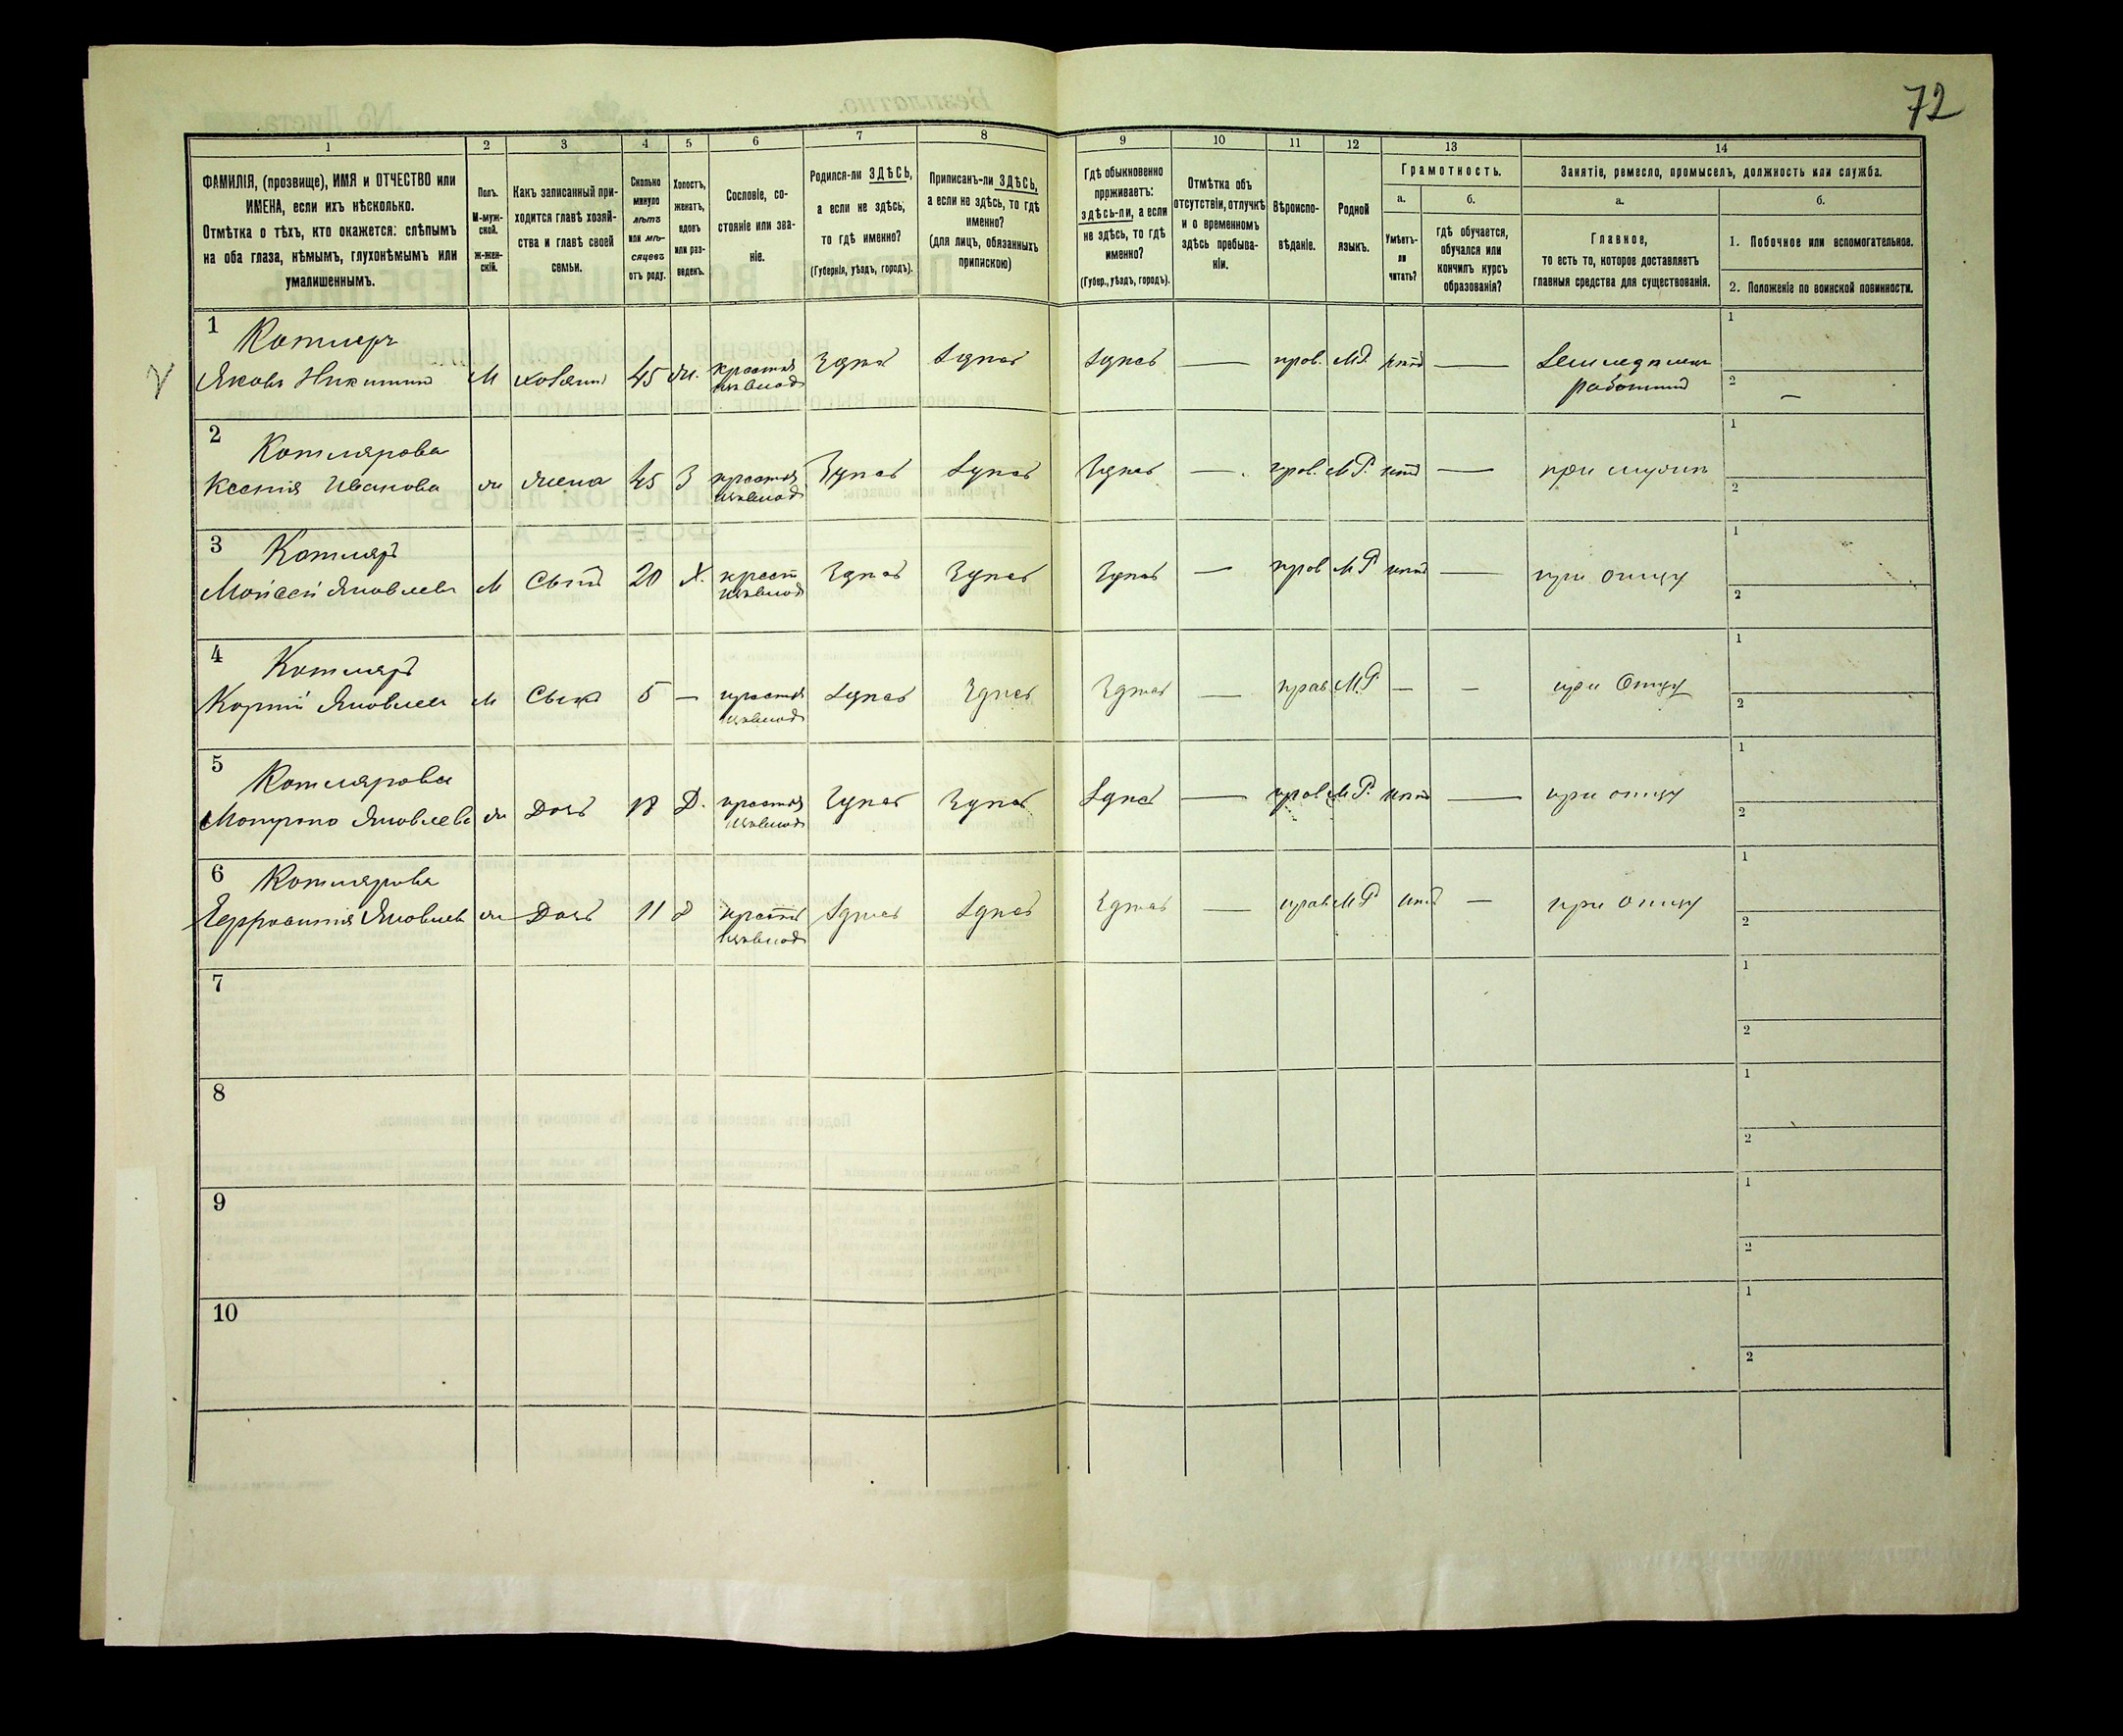 72
1
2
3
4
5
6
7
8
9
10
11
12
13
14
ФАМИЛІЯ, (прозвище), ИМЯ и ОТЧЕСТВО или
ИМЕНА, если ихъ нѣсколько.
Отмѣтка о тѣхъ, кто окажется: слѣпымъ
на оба глаза, нѣмымъ, глухонѣмымъ или
умалишеннымъ.
Полъ.
М-муж-
ской.
Ж-жен-
скій.
Какъ записанный при-
ходится главѣ хозяй-
ства и главѣ своей
семьи.
Сколько
минуло
лѣтъ
или мѣ-
сяцевъ
отъ роду.
Холостъ,
женатъ,
вдовъ
или раз-
веденъ.
Сословіе, со-
стояніе или зва-
ніе.
Родился-ли ЗДѢСЬ,
а если не здѣсь,
то гдѣ именно?
(Губернія, уѣздъ, городъ).
Приписанъ-ли ЗДѢСЬ,
а если не здѣсь, то гдѣ
именно?
(для лицъ, обязанныхъ
припискою)
Гдѣ обыкновенно
проживаетъ:
здѣсь-ли, а если
не здѣсь, то гдѣ
именно?
(Губер., уѣздъ, городъ).
Отмѣтка объ
отсутствіи, отлучкѣ
и о временномъ
здѣсь пребыва-
ніи.
Вѣроиспо-
вѣданіе.
Родной
языкъ.
Грамотность.
а.
Умѣетъ-
ли
читать?
б.
гдѣ обучается,
обучался или
кончилъ курсъ
образованія?
Занятіе, ремесло, промыселъ, должность или служба.
а.
Главное,
то есть то, которое доставляетъ
главныя средства для существованія.
б.
1. Побочное или вспомогательное.
2. Положеніе по воинской повинности.
1 Котляръ
Яковъ Никитинъ М хозяинъ 45 ж. Здѣсь Здѣсь Здѣсь — прав. М.Р. нѣтъ —
работникъ
1
2 —
2 Котлярова
Ксенія Иванова ж жена 45 З Здѣсь Здѣсь Здѣсь — прав. М.Р. нѣтъ — при мужѣ
1
2
3 Котляръ
Мойсей Яковлевъ М Сынъ 20 Х. крест Здѣсь Здѣсь Здѣсь — прав М.Р. нѣтъ — при отцу
1
2
4 Котляръ
Корній Яковлев М Сынъ 5 — Здѣсь Здѣсь Здѣсь — прав. М.Р. — — при Отцу
1
2
5 Котлярова
Яковлева ж Дочь 18 Д. Здѣсь Здѣсь Здѣсь — прав М.Р. нѣтъ — при отцу
1
2
6 Котлярова
Яковлев ж Дочь 11 Здѣсь Здѣсь Здѣсь — прав М.Р нѣтъ — при отцу
1
2
7
1
2
8
1
2
9
1
2
10
1
2